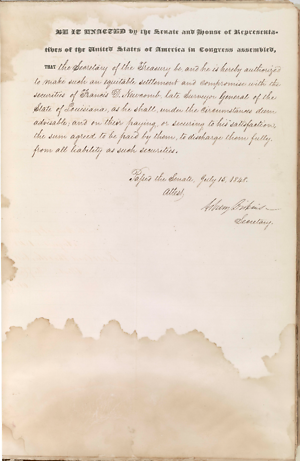 BE IT ENACTED by the Senate and House of Representa-
tives of the United States of America in Congress assembled,
THAT the Secretary of the Treasury be and he is hereby authorized
to make such an equitable settlement and compromise with the
securities of Francis D. Newcomb, late Surveyor General of the
State of Louisiana, as he shall, under the circumstances deem
advisable; and on their paying, or securing to his satisfaction,
the sum agreed to be paid by them, to discharge them fully
from all liability as such securities.
Passed the Senate July 15, 1841.
Attest,
Asbury Dickins
Secretary